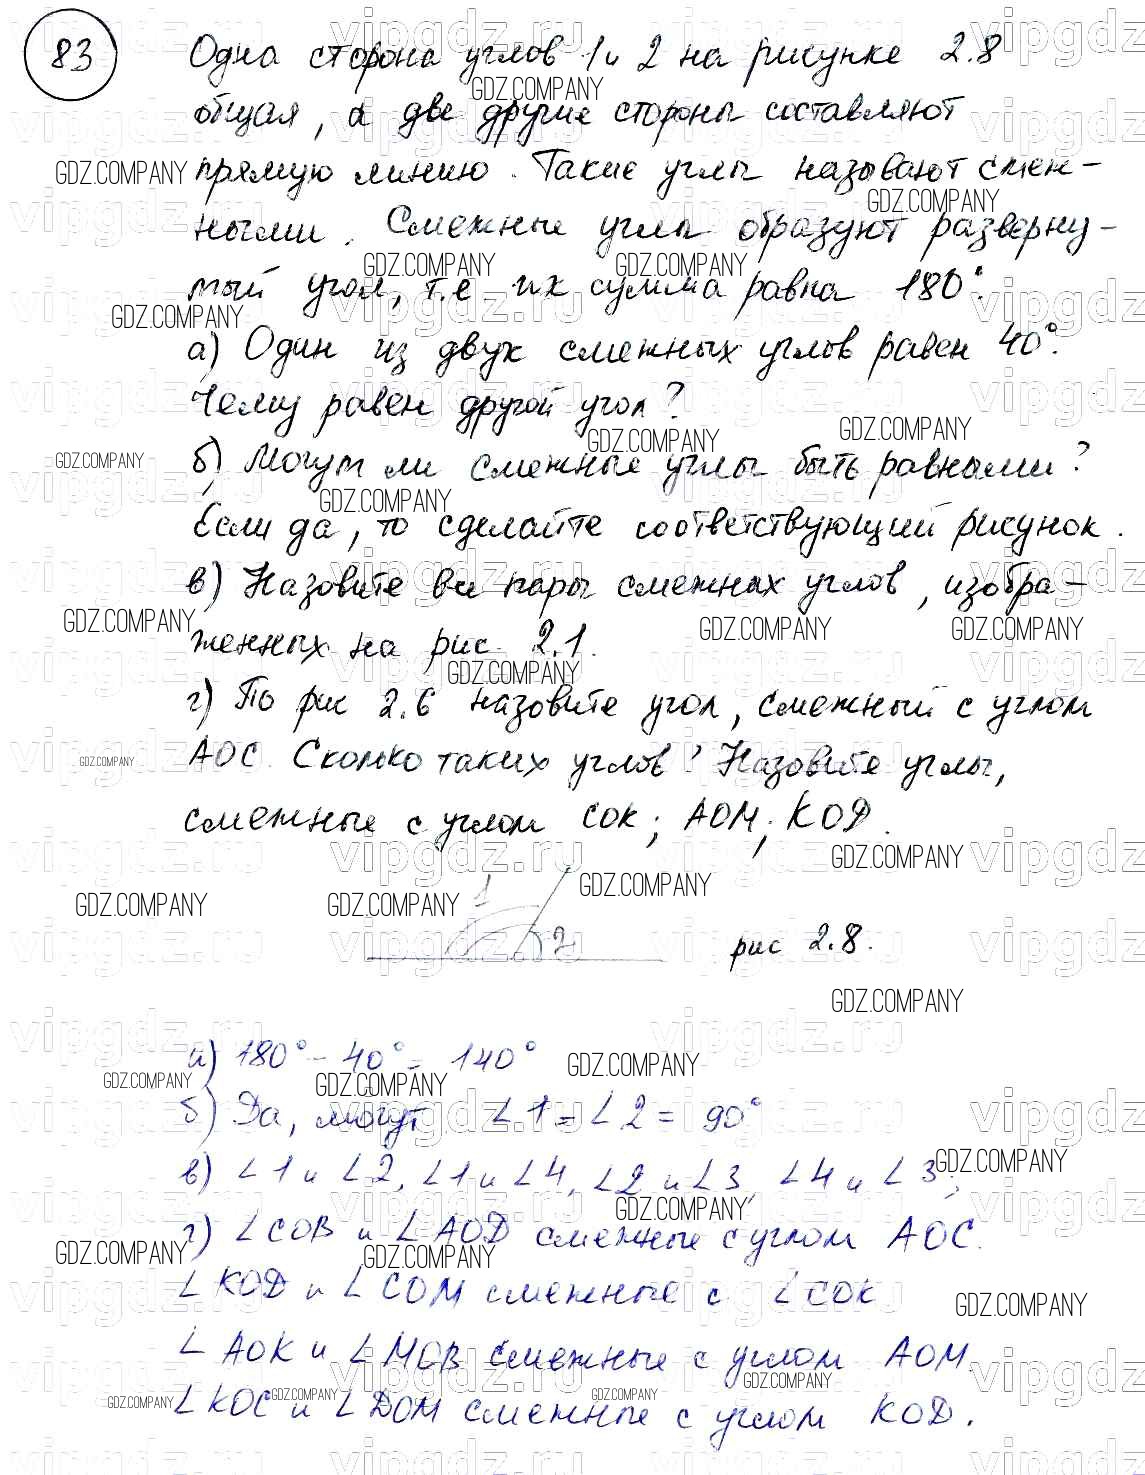 83 Одна сторона углов 1 и 2 на рисунке 2.8
общая, а две другие стороны составляют
прямую линию. Такие углы называют смеж-
ными. Смежные углы образуют разверну-
тый угол, т.е их сумма равна 180°.
а) Один из двух смежных углов равен 40°.
Чему равен другой угол?
б) Могут ли смежные углы быть равными?
Если да, то сделайте соответствующий рисунок.
в) Назовите все пары смежных углов, изобра-
женных на рис 2.1.
г) По рис 2.6 назовите угол, смежный с углом
АОС. Сколько таких углов? Назовите углы,
смежные с углом СОК; АОМ; КОД.
1
2 рис 2.8.
а) 180° - 40° = 140°
б) Да, могут ∠1 = ∠2 = 90°
в) ∠1 и ∠2, ∠1 и ∠4, ∠2 и ∠3, ∠4 и ∠3;
г) ∠СОВ и ∠АОД смежные с углом АОС.
∠КОД и ∠СОМ смежные с ∠СОК
∠АОК и ∠МОВ смежные с углом АОМ.
∠КОС и ∠DОМ смежные с углом КОД.
vipgdz.ru
GDZ.COMPANY